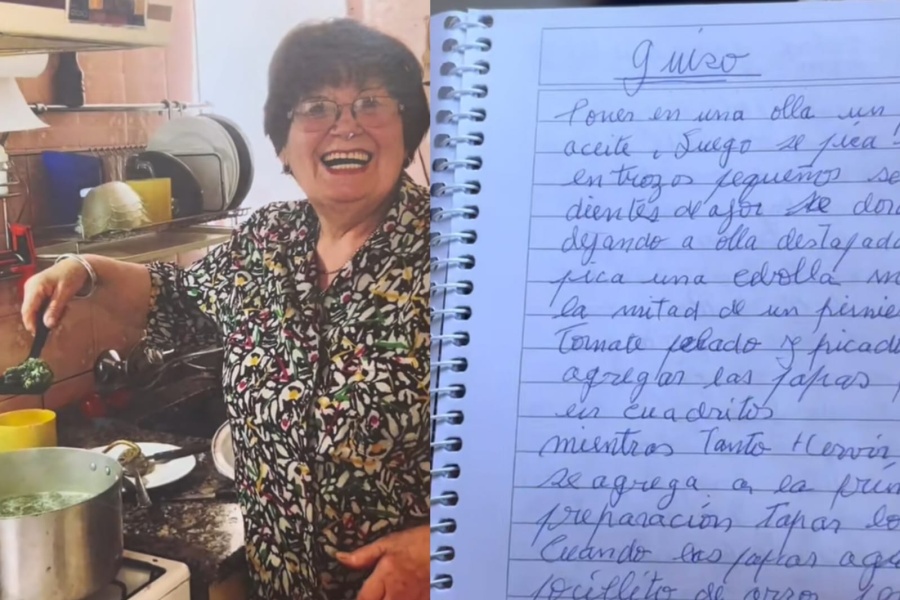 guiso
Poner en una olla un
aceite, Luego se pica
en trozos pequeños se
dientes de ajor se dora
dejando a olla destapada
pica una cebolla
la mitad de un pimie
Tomate pelado y picad
agregar las papas
en cuadritos
mientras Tanto Hervir
se agrega a la prim
preparación Tapar
Cuando las papas
pocillito de arroz